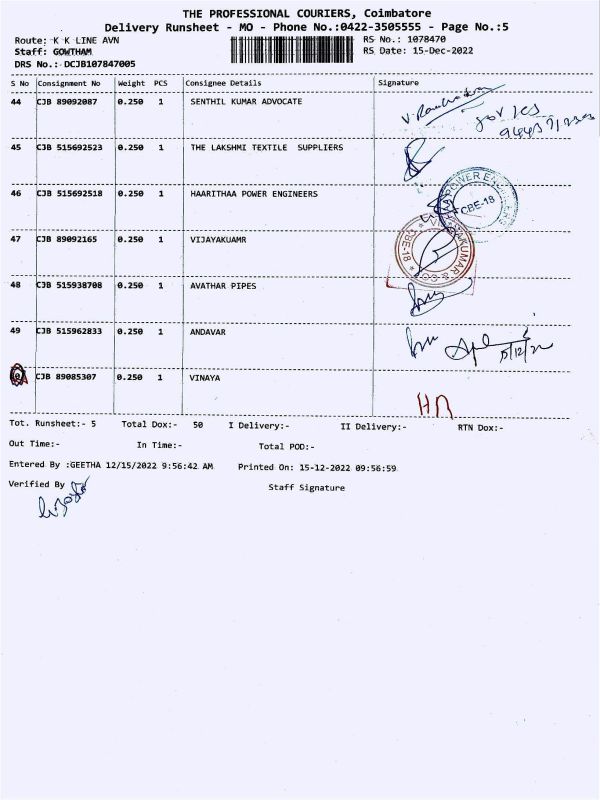 THE PROFESSIONAL COURIERS, Coimbatore
Delivery Runsheet - MO - Phone No.:0422-3505555 - Page No.:5
Route: K K LINE AVN RS No.: 1078470
Staff: GOWTHAM RS Date: 15-Dec-2022
DRS No.: DCJB107847005
S No Consignment No Weight PCS Consignee Details Signature
44 CJB 89092087 0.250 1 SENTHIL KUMAR ADVOCATE
45 CJB 515692523 0.250 1 THE LAKSHMI TEXTILE SUPPLIERS
46 CJB 515692518 0.250 1 HAARITHAA POWER ENGINEERS
CBE-18
47 CJB 89092165 0.250 1 VIJAYAKUAMR
48 CJB 515938708 0.250 1 AVATHAR PIPES
49 CJB 515962833 0.250 1 ANDAVAR
15/12/22
CJB 89085307 0.250 1 VINAYA
Tot. Runsheet:- 5 Total Dox:- 50 I Delivery:- II Delivery:- RTN Dox:-
Out Time:- In Time:- Total POD:-
Entered By :GEETHA 12/15/2022 9:56:42 AM Printed On: 15-12-2022 09:56:59
Verified By Staff Signature